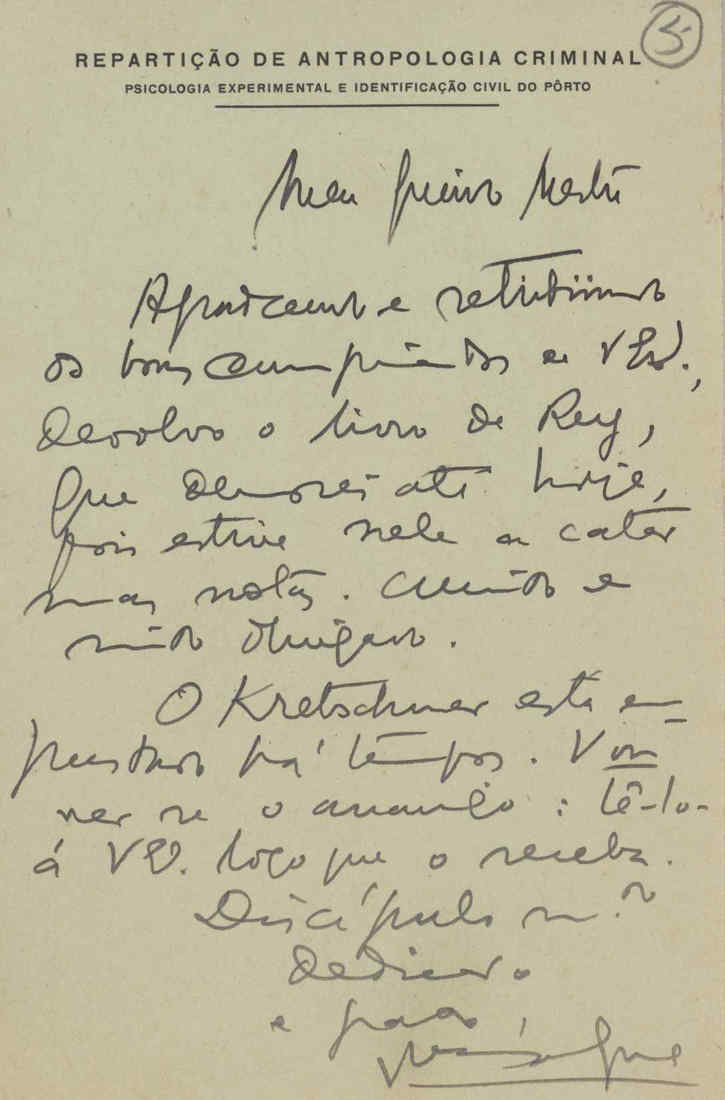 5
REPARTIÇÃO DE ANTROPOLOGIA CRIMINAL
PSICOLOGIA EXPERIMENTAL E IDENTIFICAÇÃO CIVIL DO PÔRTO
Meu queirdo Mestre
Agradecendo e retribuindo
os bons cumprimentos de V Ex.,
devolvo o livro de Rey,
que demorei até hoje,
pois estive nele a catar
umas notas. Muito e
muito obrigado.
O Kretschmer está em-
prestado há tempos. Vou
ver se o arranjo: tê-lo-
á V Ex. logo que o receba.
Discípulo m.to
dedicado
e grato,